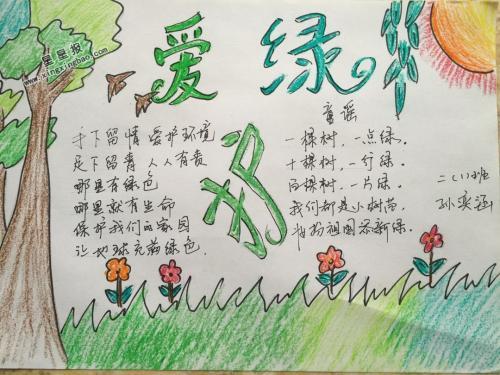 星星报
www.xingxingbao.com
爱绿护
手下留情 爱护环境
足下留青 人人有责
哪里有绿色
哪里就有生命
保护我们的家园
让地球充满绿色.
童谣
一棵树，一点绿.
十棵树，一行绿.
百棵树，一片绿.
我们都是小树苗.
给祖国添新绿.
二(1)班
孙奕涵